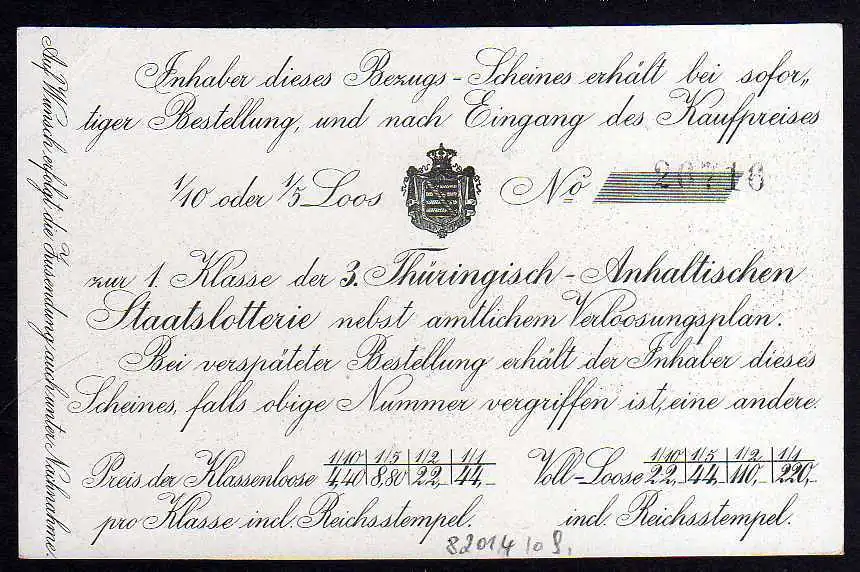 Inhaber dieses Bezugs-Scheines erhält bei sofor„
tiger Bestellung, und nach Eingang des Kaufpreises
1/10 oder 1/5 Loos No 26716
zur 1. Klasse der 3. Thüringisch-Anhaltischen
Staatslotterie nebst amtlichem Verloosungsplan.
Bei verspäteter Bestellung erhält der Inhaber dieses
Scheines, falls obige Nummer vergriffen ist, eine andere.
1/10 1/5 1/2 1/1 1/10 1/5 1/2 1/1
Preis der Klassenloose 4,40 8,80 22,- 44,- Voll-Loose 22,- 44,- 110,- 220,-
pro Klasse incl. Reichsstempel. incl. Reichsstempel.
Auf Wunsch erfolgt die Zusendung auch unter Nachnahme.